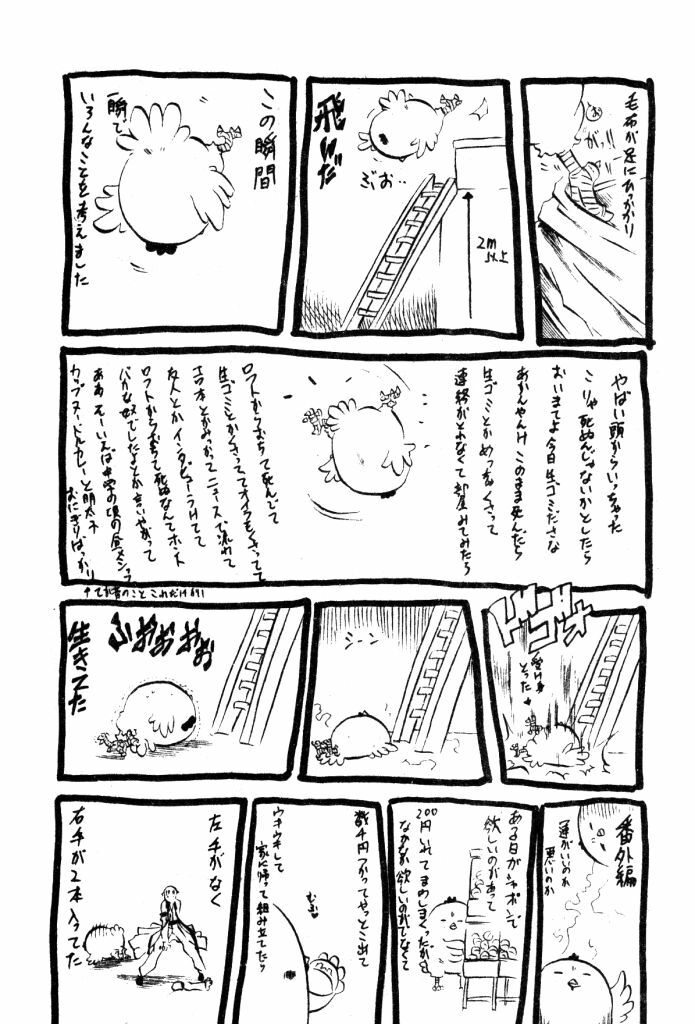 毛布が足にひっかかり
あ
が…!!
飛んだ
ぶお…
2m
以上
この瞬間
一瞬で
いろんなことを考えました
やばい頭からいっちゃった
こりゃ死ぬんじゃないかとしたら
おいまてよ今日生ゴミださな
あかんやんけ このまま死んだら
生ゴミとかめっちゃくさって
連絡がとれなくて部屋みてみたら
ロフトからおちて死んでて
生ゴミとかくさっててオイラもくさってて
エロ本とかみつかってニュースで流れて
友人とかインタビューうけてて
ロフトからおちて死ぬなんてホント
バカな奴でしたよとか言いやがって
ああ そーいえば中学の頃の
カップヌードルカレーと明太子
おにぎりばっかり
ドンゴォ
受け身
とった
シーン
ぶおおおお
生きてた
番外編
運がいいのか
悪いのか
ある日ガシャポンで
欲しいのがあって
200円
なかなか欲しいのがでなくて
数千円つかってやっとこ出て
ウキウキして
家に帰って組み立てたら
左手がなく
右手が2本入ってた